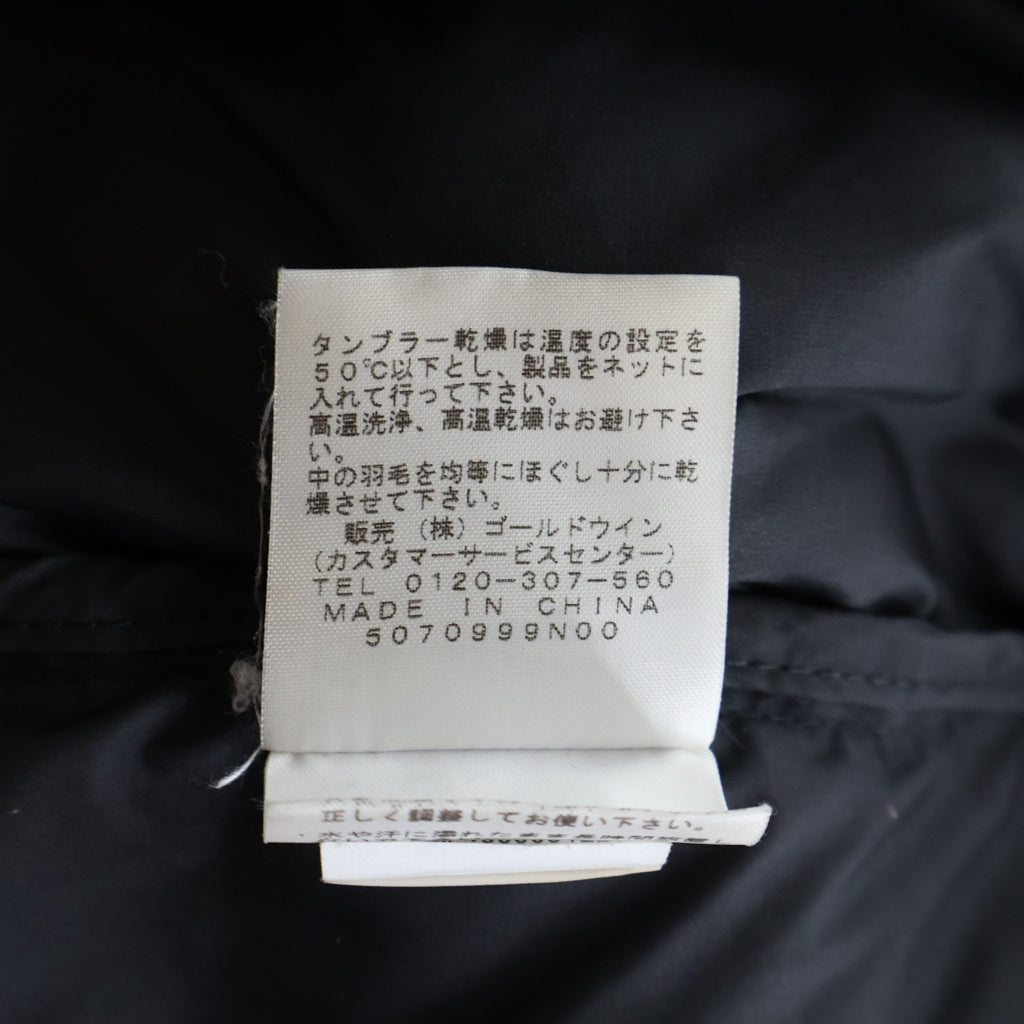 タンブラー乾燥は温度の設定を
50℃以下とし、製品をネットに
入れて行って下さい。
高温洗浄、高温乾燥はお避け下さ
い。
中の羽毛を均等にほぐし十分に乾
燥させて下さい。
販売 (株) ゴールドウイン
(カスタマーサービスセンター)
TEL 0120-307-560
MADE IN CHINA
5070999N00
正しく調整してお使い下さい。
・水や汗に濡れたまま長時間放置